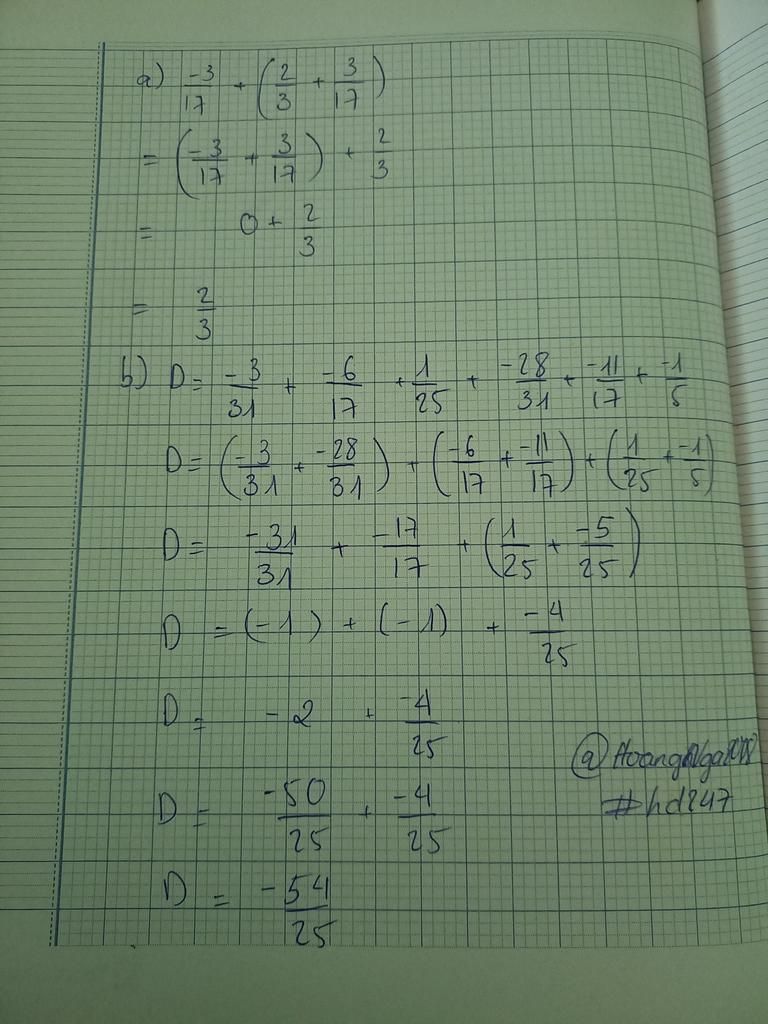 a) -3/17 + (2/3 + 3/17)
= (-3/17 + 3/17) + 2/3
= 0 + 2/3
= 2/3
b) D = -3/31 + -6/17 + 1/25 + -28/31 + -11/17 + -1/5
D = (-3/31 + -28/31) + (-6/17 + -11/17) + (1/25 + -1/5)
D = -31/31 + -17/17 + (1/25 + -5/25)
D = (-1) + (-1) + -4/25
D = -2 + -4/25
D = -50/25 + -4/25
#hd247
D = -54/25